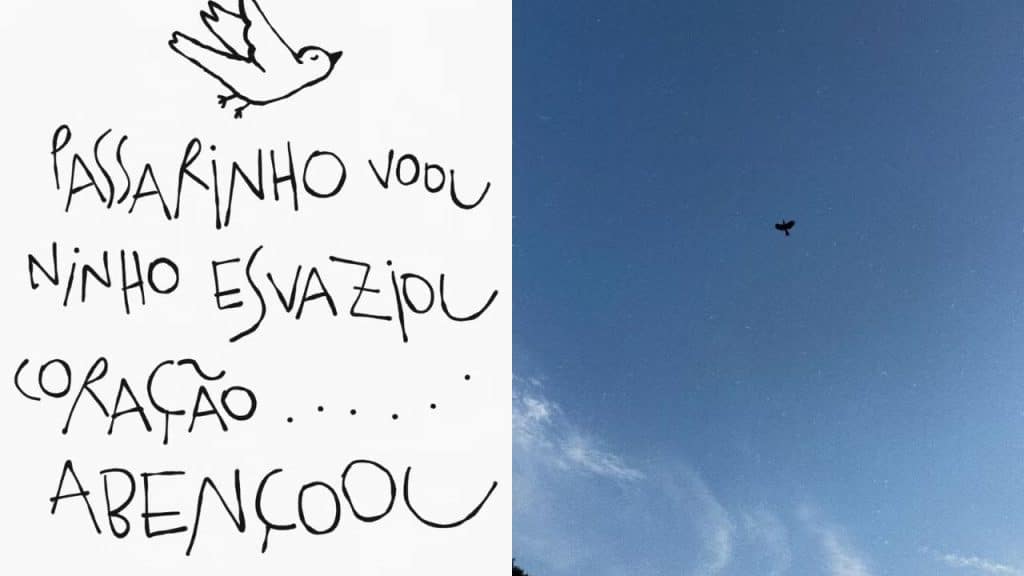 PASSARINHO VOOU
NINHO ESVAZIOU
CORAÇÃO . . . . . .
ABENÇOOU